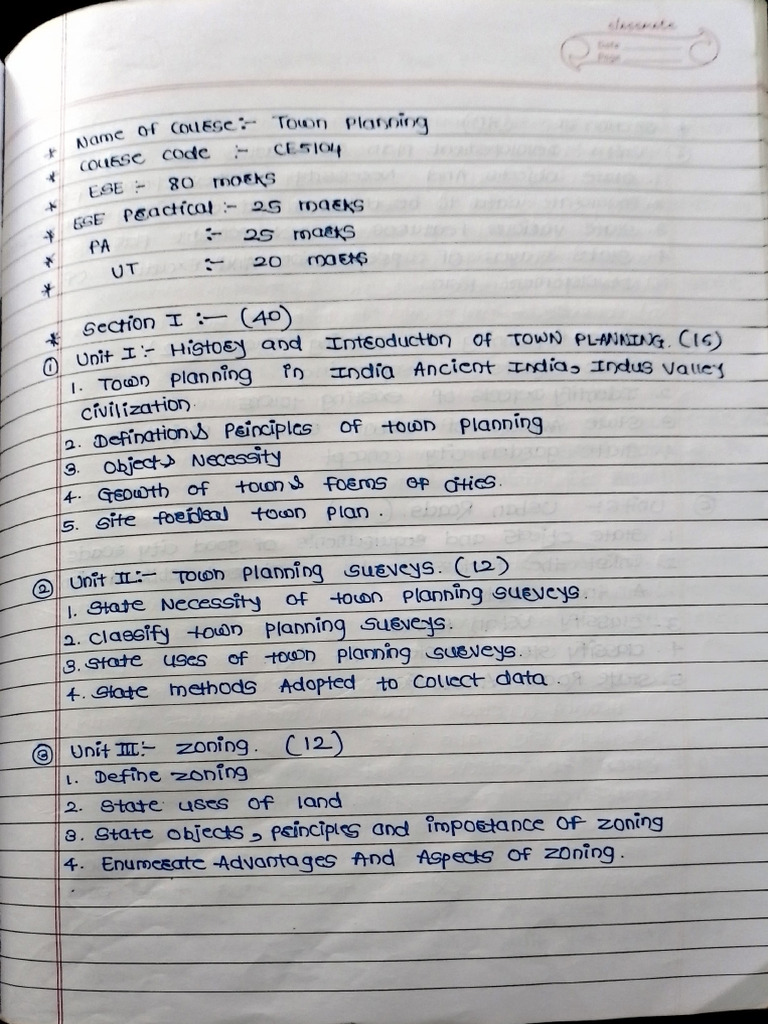 classmate
Date
Page
* Name of course:- Town Planning
* course code :- CE5104
* ESE:- 80 marks
* ESE Practical:- 25 marks
* PA :- 25 marks
* UT :- 20 marks
* Section I :- (40)
① Unit I:- History and Introduction of TOWN PLANNING. (16)
1. Town planning in India Ancient India, Indus Valley
civilization.
2. Defination & Principles of town planning
3. Object & Necessity
4. Growth of town & forms of cities.
5. Site for ideal town plan.
② Unit II:- Town Planning surveys. (12)
1. State Necessity of town planning surveys.
2. Classify town planning surveys.
3. State uses of town planning surveys.
4. State methods Adopted to collect data.
③ Unit III:- zoning. (12)
1. Define zoning
2. State uses of land
3. State objects, principles and importance of zoning
4. Enumerate Advantages And Aspects of zoning.